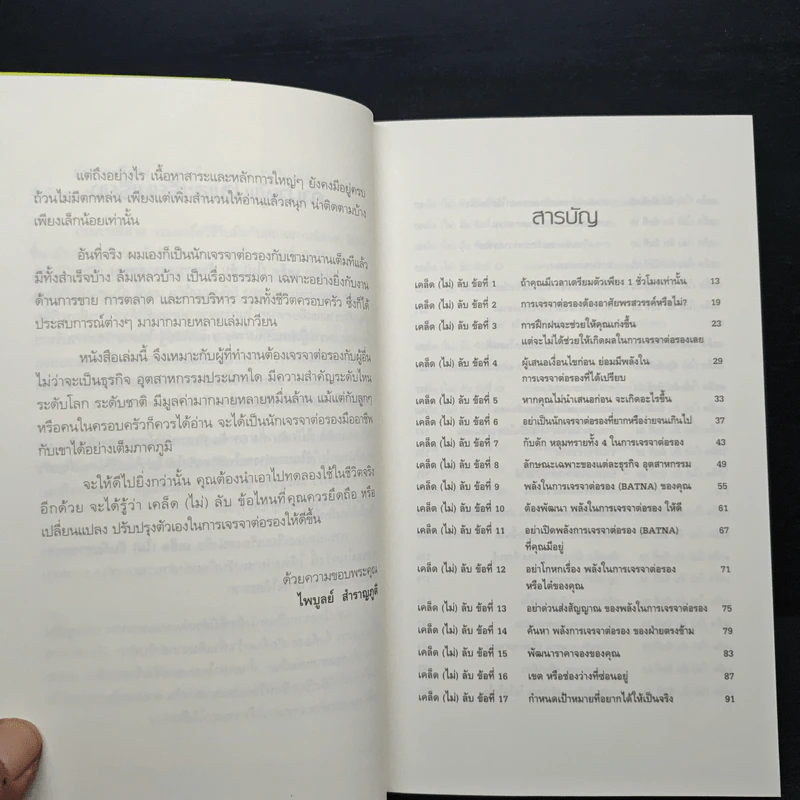 แต่ถึงอย่างไร เนื้อหาสาระและหลักการใหญ่ๆ ยังคงมีอยู่ครบ
ถ้วนไม่มีตกหล่น เพียงแต่เพิ่มสำนวนให้อ่านแล้วสนุก น่าติดตามบ้าง
เพียงเล็กน้อยเท่านั้น
อันที่จริง ผมเองก็เป็นนักเจรจาต่อรองกับเขามานานเต็มทีแล้ว
มีทั้งสำเร็จบ้าง ล้มเหลวบ้าง เป็นเรื่องธรรมดา เฉพาะอย่างยิ่งกับงาน
ด้านการขาย การตลาด และการบริหาร รวมทั้งชีวิตครอบครัว ซึ่งก็ได้
ประสบการณ์ต่างๆ มามากมายหลายเล่มเกวียน
หนังสือเล่มนี้ จึงเหมาะกับผู้ที่ทำงานต้องเจรจาต่อรองกับผู้อื่น
ไม่ว่าจะเป็นธุรกิจ อุตสาหกรรมประเภทใด มีความสำคัญระดับไหน
ระดับโลก ระดับชาติ มีมูลค่ามากมายหลายหมื่นล้าน แม้แต่กับลูกๆ
หรือคนในครอบครัวก็ควรได้อ่าน จะได้เป็นนักเจรจาต่อรองมืออาชีพ
กับเขาได้อย่างเต็มภาคภูมิ
จะให้ดีไปยิ่งกว่านั้น คุณต้องนำเอาไปทดลองใช้ในชีวิตจริง
อีกด้วย จะได้รู้ว่า เคล็ด (ไม่) ลับ ข้อไหนที่คุณควรยึดถือ หรือ
เปลี่ยนแปลง ปรับปรุงตัวเองในการเจรจาต่อรองให้ดีขึ้น
ด้วยความขอบพระคุณ
ไพบูลย์ สำราญภูติ
สารบัญ
เคล็ด (ไม่) ลับ ข้อที่ 1 ถ้าคุณมีเวลาเตรียมตัวเพียง 1 ชั่วโมงเท่านั้น 13
เคล็ด (ไม่) ลับ ข้อที่ 2 การเจรจาต่อรองต้องอาศัยพรสวรรค์หรือไม่? 19
เคล็ด (ไม่) ลับ ข้อที่ 3 การฝึกฝนจะช่วยให้คุณเก่งขึ้น 23
แต่จะไม่ได้ช่วยให้เกิดผลในการเจรจาต่อรองเลย
เคล็ด (ไม่) ลับ ข้อที่ 4 ผู้เสนอเงื่อนไขก่อน ย่อมมีพลังใน 29
การเจรจาต่อรองที่ได้เปรียบ
เคล็ด (ไม่) ลับ ข้อที่ 5 หากคุณไม่นำเสนอก่อน จะเกิดอะไรขึ้น 33
เคล็ด (ไม่) ลับ ข้อที่ 6 อย่าเป็นนักเจรจาต่อรองที่ยากหรือง่ายจนเกินไป 37
เคล็ด (ไม่) ลับ ข้อที่ 7 กับดัก หลุมทรายทั้ง 4 ในการเจรจาต่อรอง 43
เคล็ด (ไม่) ลับ ข้อที่ 8 ลักษณะเฉพาะของแต่ละธุรกิจ อุตสาหกรรม 49
เคล็ด (ไม่) ลับ ข้อที่ 9 พลังในการเจรจาต่อรอง (BATNA) ของคุณ 55
เคล็ด (ไม่) ลับ ข้อที่ 10 ต้องพัฒนา พลังในการเจรจาต่อรอง ให้ดี 61
เคล็ด (ไม่) ลับ ข้อที่ 11 อย่าเปิดพลังการเจรจาต่อรอง (BATNA) 67
ที่คุณมีอยู่
เคล็ด (ไม่) ลับ ข้อที่ 12 อย่าโกหกเรื่อง พลังในการเจรจาต่อรอง 71
หรือไต๋ของคุณ
เคล็ด (ไม่) ลับ ข้อที่ 13 อย่าด่วนส่งสัญญาณ ของพลังในการเจรจาต่อรอง 75
เคล็ด (ไม่) ลับ ข้อที่ 14 ค้นหา พลังการเจรจาต่อรอง ของฝ่ายตรงข้าม 79
เคล็ด (ไม่) ลับ ข้อที่ 15 พัฒนาราคาจองของคุณ 83
เคล็ด (ไม่) ลับ ข้อที่ 16 เขต หรือช่องว่างที่ซ่อนอยู่ 87
เคล็ด (ไม่) ลับ ข้อที่ 17 กำหนดเป้าหมายที่อยากได้ให้เป็นจริง 91